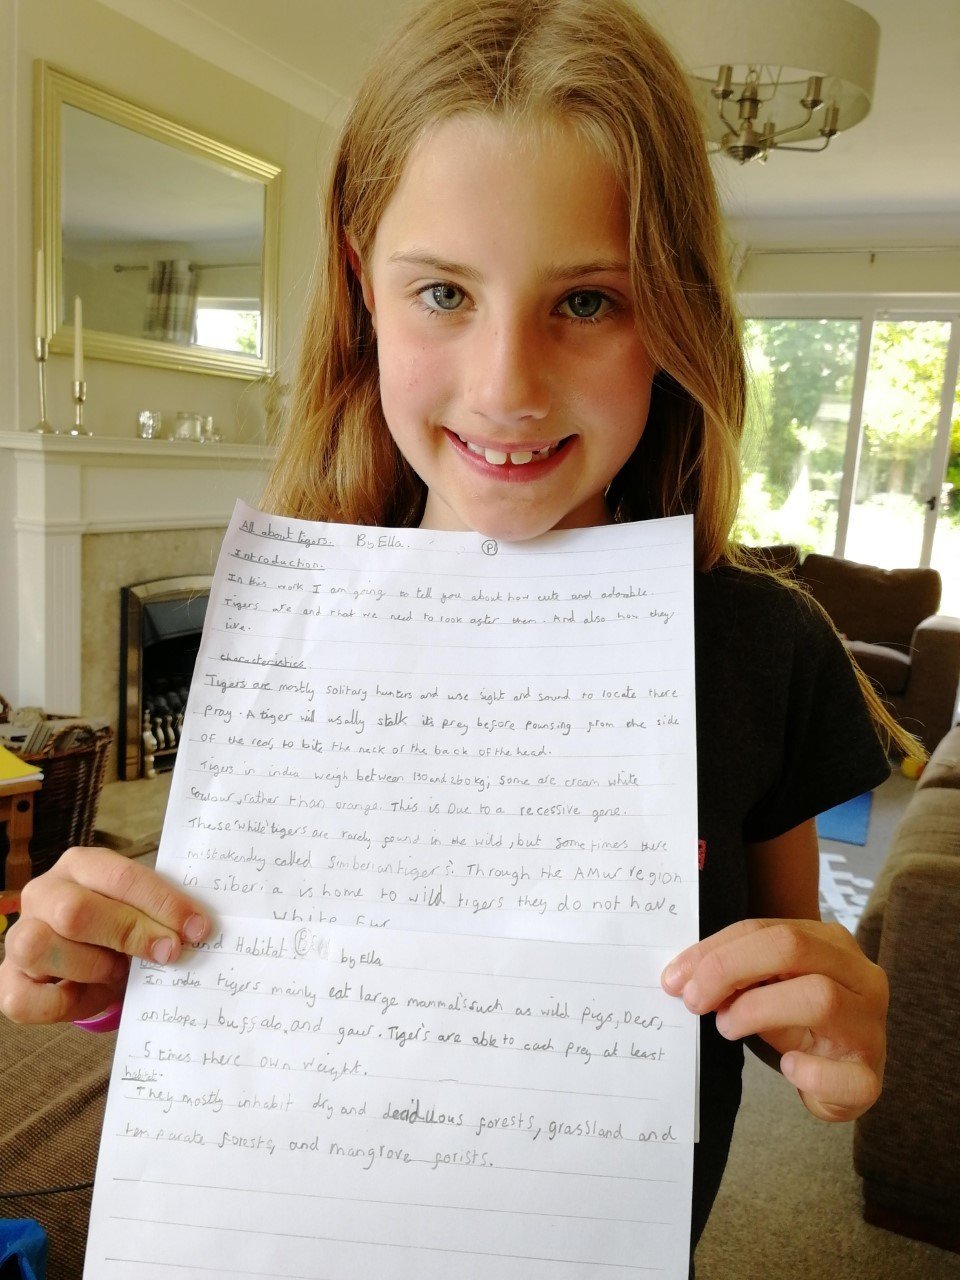 All about tigers. By Ella. P1
Introduction.
In this work I am going to tell you about how cute and adorable
Tigers are and that we need to look after them. And also how they
live.
characteristics.
Tigers are mostly solitary hunters and use sight and sound to locate there
pray. A tiger will usally stalk its prey before pounsing from the side
of the rear, to bite the neck or the back of the head.
Tigers in india weigh between 130 and 260kg; some are cream white
colour, rather than orange. This is Due to a recessive gene.
These 'white' tigers are rarely found in the wild, but some times there
mistakenley called Simberian tigers. Through the AMur region
in siberia is home to wild tigers they do not have
white Fur
and Habitat. by Ella
In india tigers mainly eat large mammals such as wild pigs, Deer,
antelope, buffalo, and gaur. Tiger's are able to each prey at least
5 times there own weight.
habitat.
They mostly inhabit dry and deciduous forests, grassland and
temparate forests, and mangrove forists.